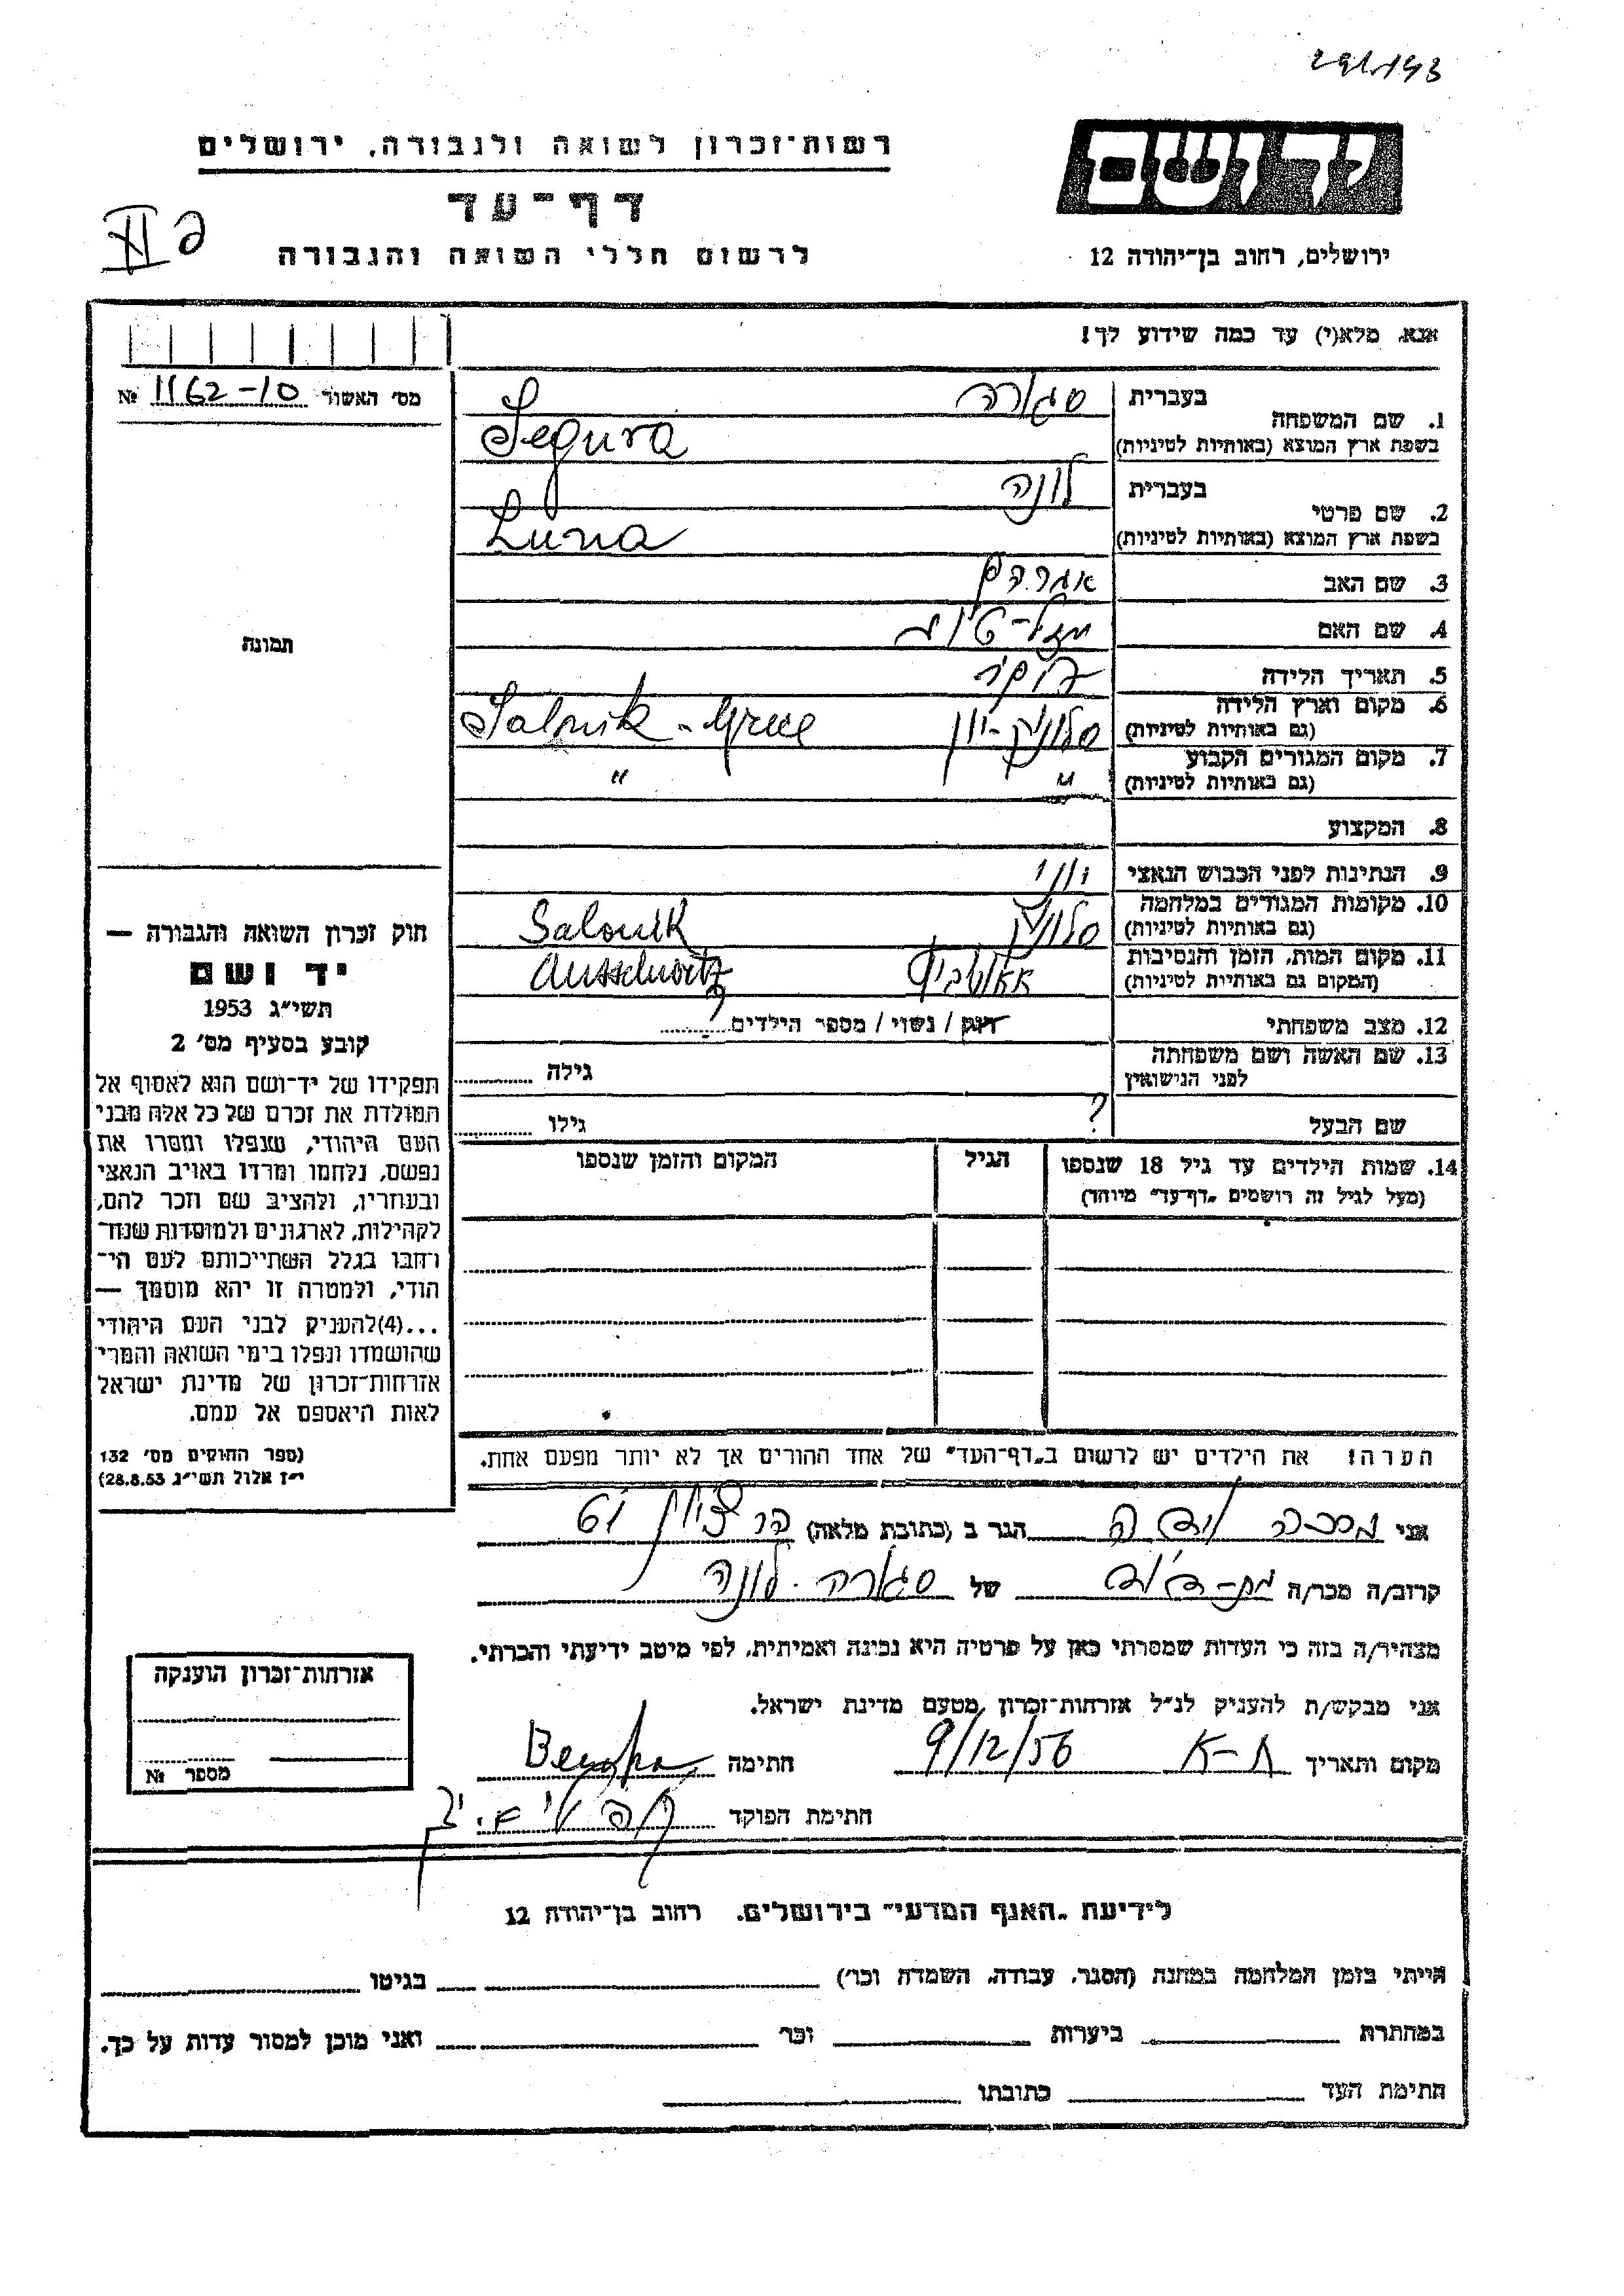 יד ושם
ירושלים, רחוב בן־יהודה 12
רשות־זכרון לשואה ולגבורה, ירושלים
דף־עד
לרשום חללי השואה והגבורה
אנא, מלא(י) עד כמה שידוע לך!
מס׳ האשור 1162-10 №
תמונה
חוק זכרון השואה והגבורה —
יד ושם
תשי״ג 1953
קובע בסעיף מס׳ 2
תפקידו של יד־ושם הוא לאסוף אל
המולדת את זכרם של כל אלה מבני
העם היהודי, שנפלו ומסרו את
נפשם, נלחמו ומרדו באויב הנאצי
ובעוזריו, ולהציב שם וזכר להם,
לקהילות, לארגונים ולמוסדות שנח־
רחבו בגלל השתייכותם לעם הי־
הודי, ולמטרה זו יהא מוסמך —
...(4)להעניק לבני העם היהודי
שהושמדו ונפלו בימי השואה והמרי
אזרחות־זכרון של מדינת ישראל
לאות היאספם אל עמם.
(ספר החוקים מס׳ 132
י״ז אלול תשי״ג 28.8.53)
1. שם המשפחה
בעברית סגורה
בשפת ארץ המוצא (באותיות לטיניות) Segura
2. שם פרטי
בעברית לונה
בשפת ארץ המוצא (באותיות לטיניות) Luna
3. שם האב אברהם
4. שם האם מזל-טוב
5. תאריך הלידה
6. מקום וארץ הלידה סלוניק-יון Salonik - Grece
(גם באותיות לטיניות)
7. מקום המגורים הקבוע " "
(גם באותיות לטיניות)
8. המקצוע
9. הנתינות לפני הכבוש הנאצי יוני
10. מקומות המגורים במלחמה סלוניק Salonik
(גם באותיות לטיניות)
11. מקום המות, הזמן והנסיבות Ausschwitz
(המקום גם באותיות לטיניות)
12. מצב משפחתי רווק / נשוי / מספר הילדים ?
13. שם האשה ושם משפחתה גילה
לפני הנישואין
שם הבעל ? גילו
14. שמות הילדים עד גיל 18 שנספו הגיל המקום והזמן שנספו
(מעל לגיל זה רושמים „דף־עד״ מיוחד)
הערה! את הילדים יש לרשום ב„דף־העד״ של אחד ההורים אך לא יותר מפעם אחת.
אני הגר ב (כתובת מלאה) הר ציון 61
קרוב/ה מכר/ה בת-דוד של סגורה - לונה
מצהיר/ה בזה כי העדות שמסרתי כאן על פרטיה היא נכונה ואמיתית, לפי מיטב ידיעתי והכרתי.
אני מבקש/ת להעניק לנ״ל אזרחות־זכרון מטעם מדינת ישראל.
מקום ותאריך ת-א 9/12/56 חתימה
חתימת הפוקד
אזרחות־זכרון הוענקה
מספר №
לידיעת „האגף המדעי״ בירושלים. רחוב בן־יהודה 12
הייתי בזמן המלחמה במחנה (הסגר, עבודה, השמדה וכו׳) בגיטו
במחתרת ביערות וכו׳ ואני מוכן למסור עדות על כך.
חתימת העד כתובתו